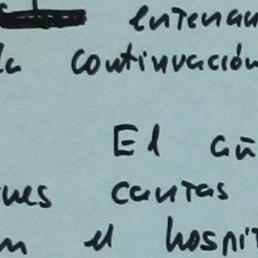 entenan
la continuación
El añ
ues cantas
en el hospit